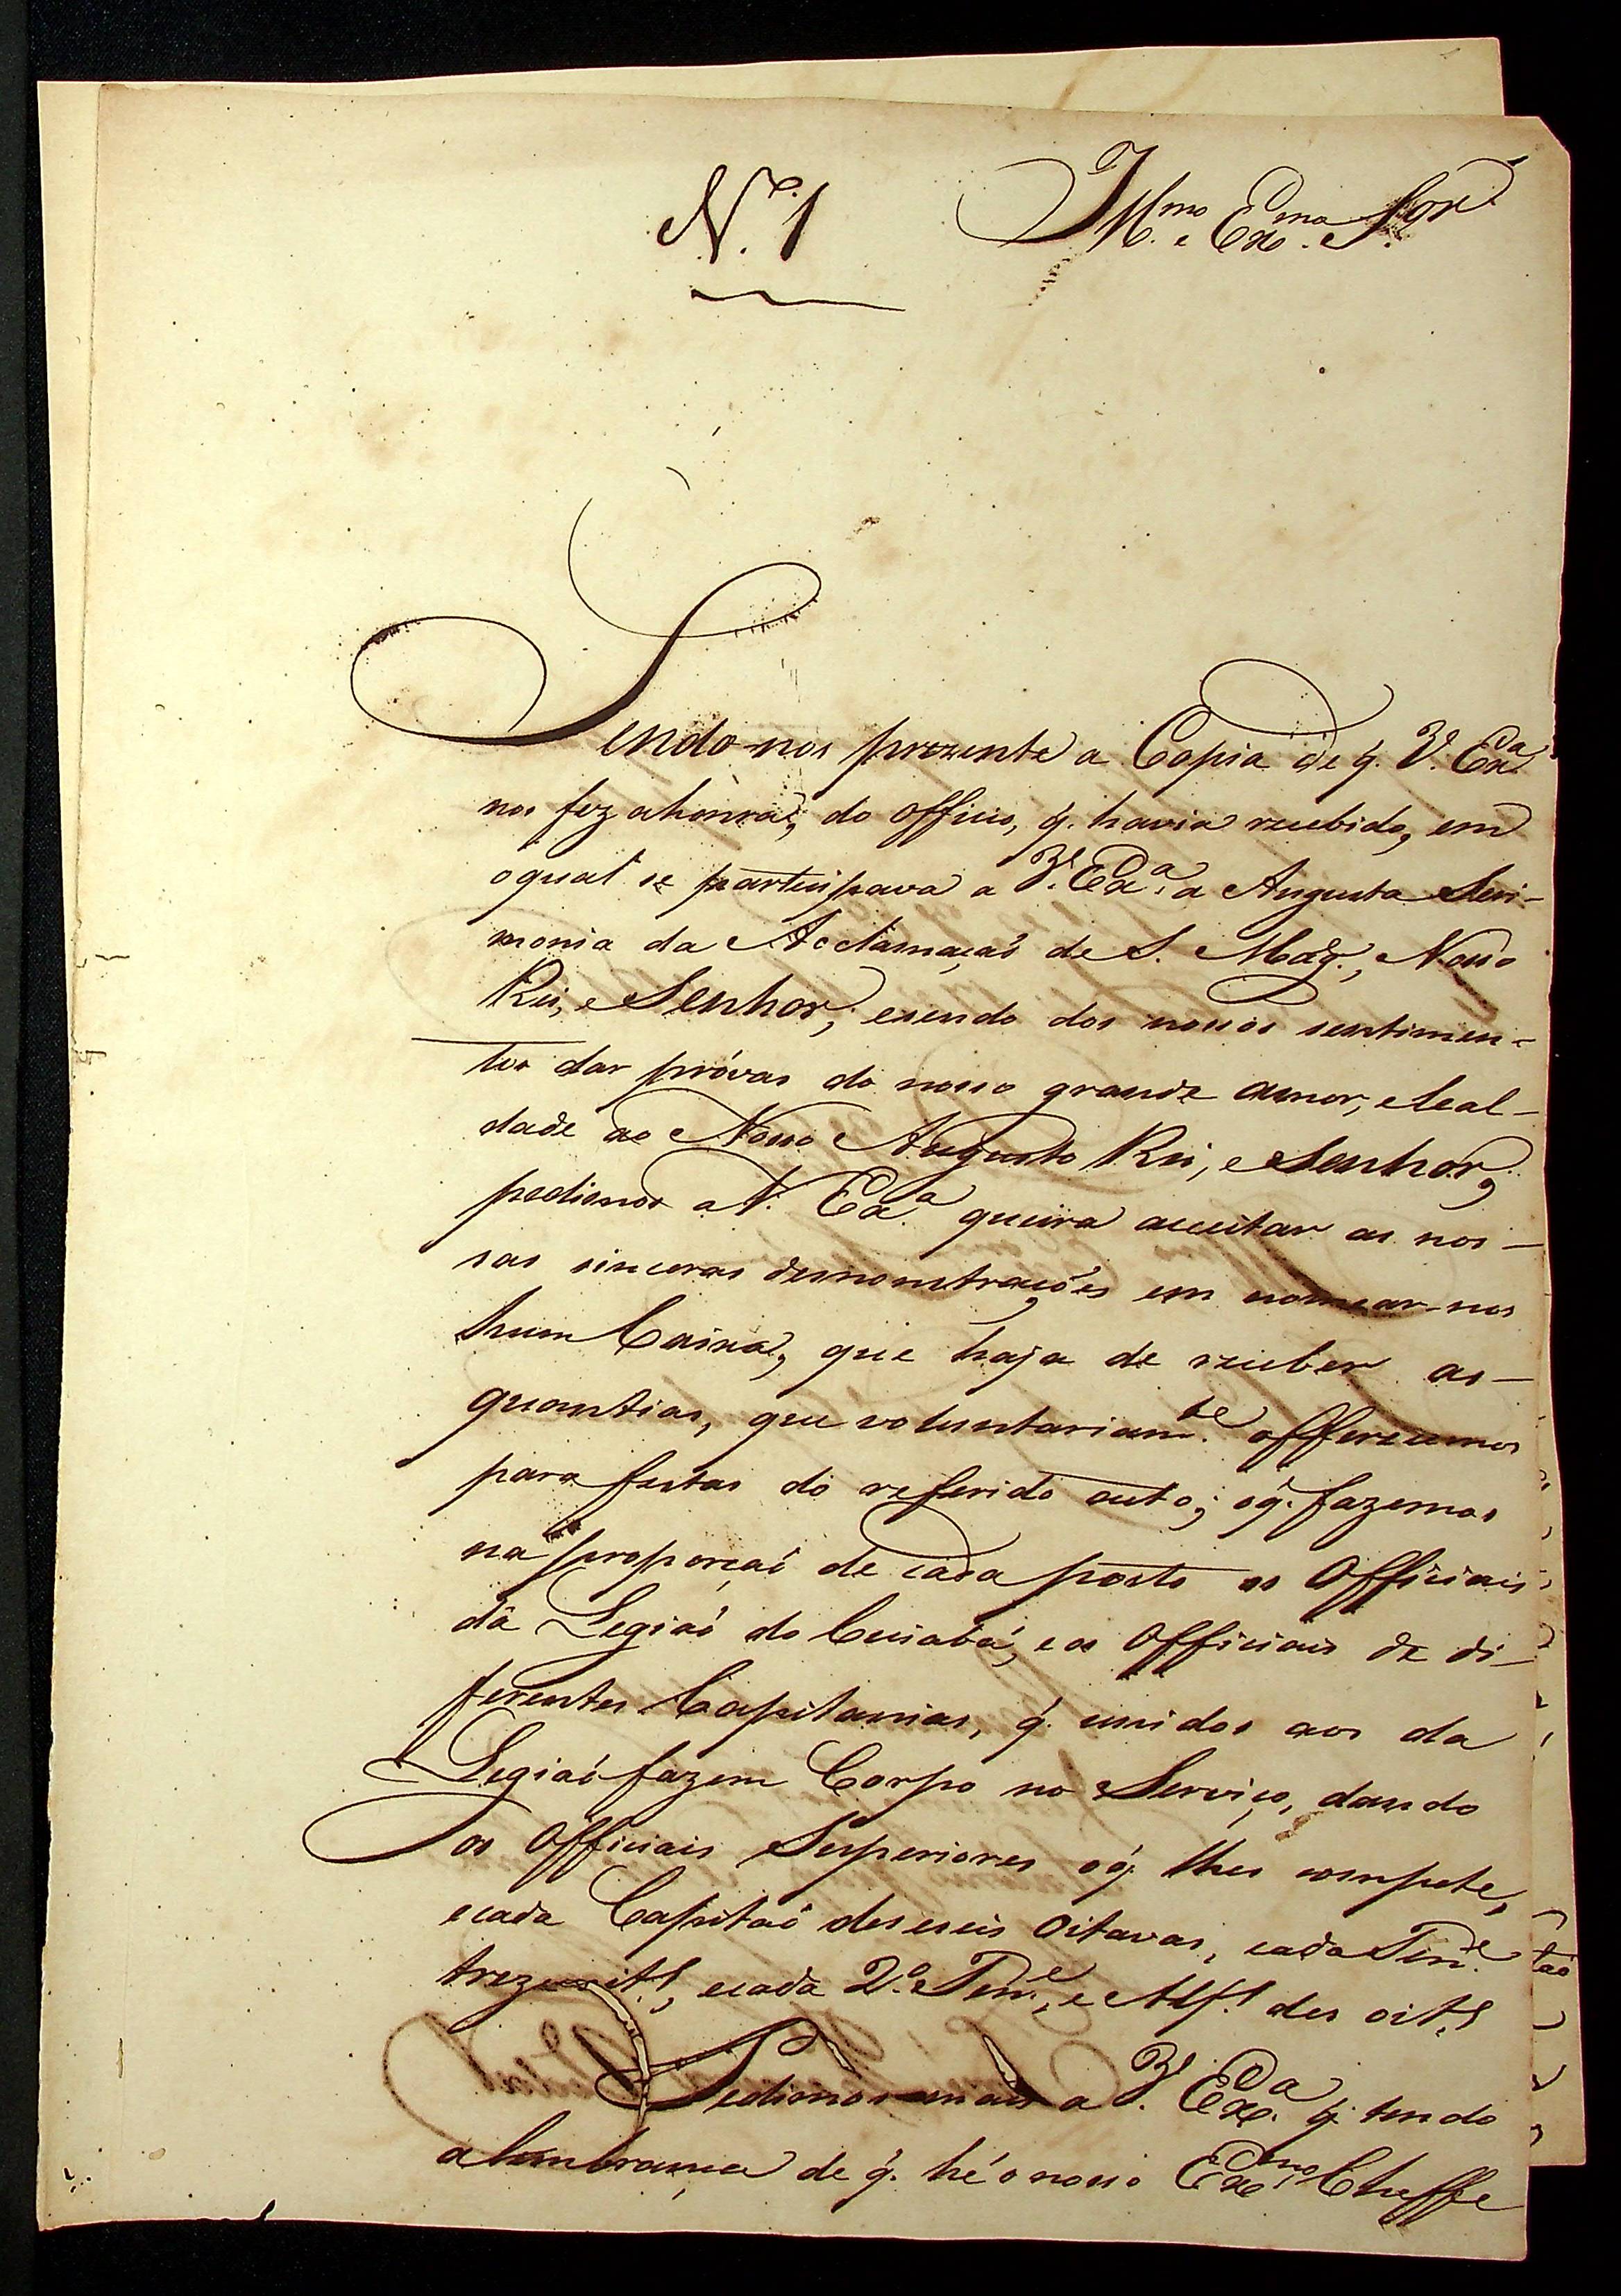 N.º 1
Ill.mo e Ex.mo Snr.
Sendo-nos prezente a Copia de q. V. Ex.a
nos fez ahonra, do officio, q. havia recebido, em
oqual se participava a V. Ex.a a Augusta Seri-
monia da Acclamaçaõ de S. Mag., Nosso
Rei, e Senhor; esendo dos nossos sentimen-
tos dar próvas do nosso grande amor, eleal-
dade ao Nosso Augusto Rei, e Senhor,
pedimos a V. Ex.a queira acceitar as nos-
sas sinceras demonstraçoẽs em nomear-nos
hum Caixa, que haja de receber as-
quantias, que voluntariam.te offerecemos
para festas do referido auto; oq. fazemos
na proporçaõ de cada posto os Officiais
da Legiaõ do Cuiabá, e os Officiais de di-
ferentes Capitanias, q. unidos aos da
Legiaõ fazem Corpo no Serviço, dando
os Officiais Superiores oq. lhes compete,
ecada Capitaõ deseseis oitavas, cada Ten.e
treze oit.s, ecada 2.º Ten.e, e Alf.s des oit.s
Pedimos mais a V. Ex.a q. tendo
alembrança de q. hé o nosso Ex.mo Cheffe